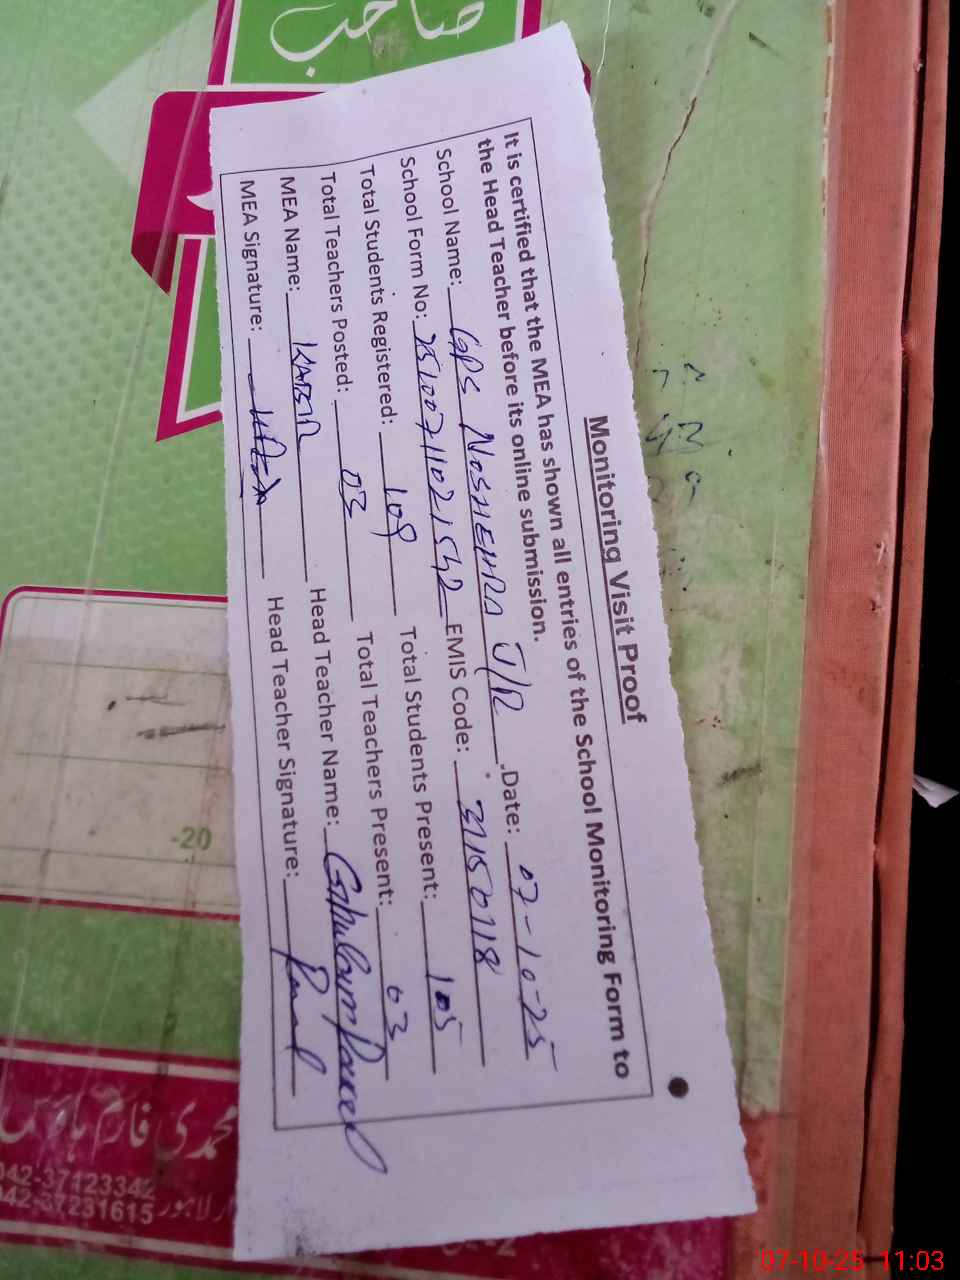 صاحب
Monitoring Visit Proof
It is certified that the MEA has shown all entries of the School Monitoring Form to
the Head Teacher before its online submission.
School Name: GPS NOSHEHRA J/R .Date: 07-10-25
School Form No: 25100711021542 EMIS Code: 31150118
Total Students Registered: 109 Total Students Present: 105
Total Teachers Posted: 03 Total Teachers Present: 03
MEA Name: KABIR Head Teacher Name: Ghulam Fareed
MEA Signature: Head Teacher Signature:
-20
محمدی فارم ہاؤس
042-37123342
042-37231615
07-10-25 11:03